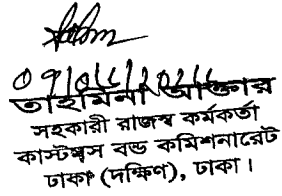 তাহমিনা আক্তার
সহকারী রাজস্ব কর্মকর্তা
কাস্টমস বন্ড কমিশনারেট
ঢাকা (দক্ষিণ), ঢাকা।